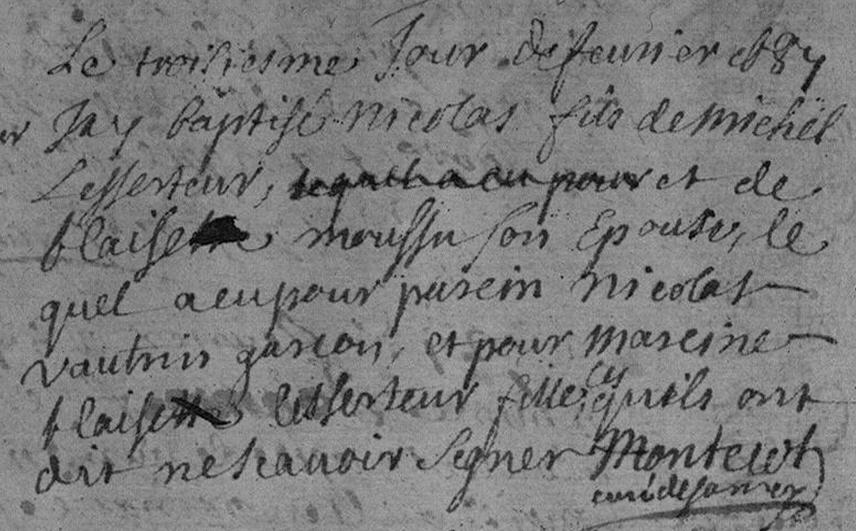 Le troisiesme Jour de feurier 1687
Jay baptisé Nicolas fils de michël
Lesserteur, lequel a eu pour et de
blaisette moussu son Epouse, le
quel a eu pour parein Nicolas
vautrin garcon, et pour mareine
blaisette lesserteur fille, qu'ils ont
dit ne scauoir Segner
curé de